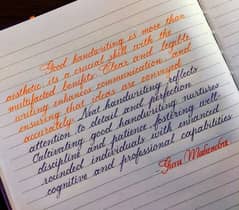 Good handwriting is more than
aesthetic its a crucial skill with the
mutafacted benefits. Clear and legible
writing enhances communication, and
ensuring that ideas are conveyed
accurately. Neat handwriting reflects
attention to detail and perfection
Cultivating good handwriting nurtures
discipline and patience, fostering well-
rounded individuals with enhanced
cognitive and professional capabilities
Mahendra